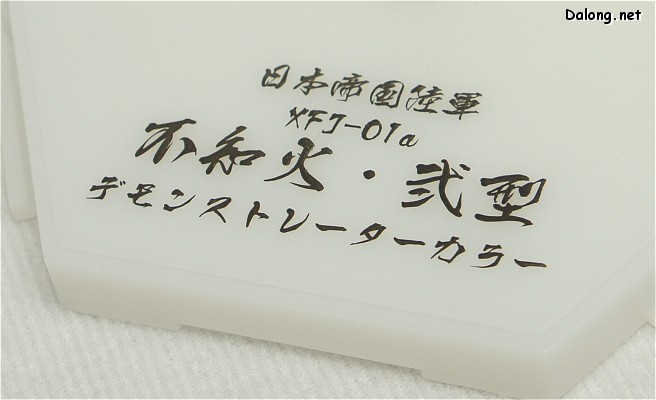 Dalong.net
日本帝国陸軍
XFJ-01a
不知火・弐型
デモンストレーターカラー